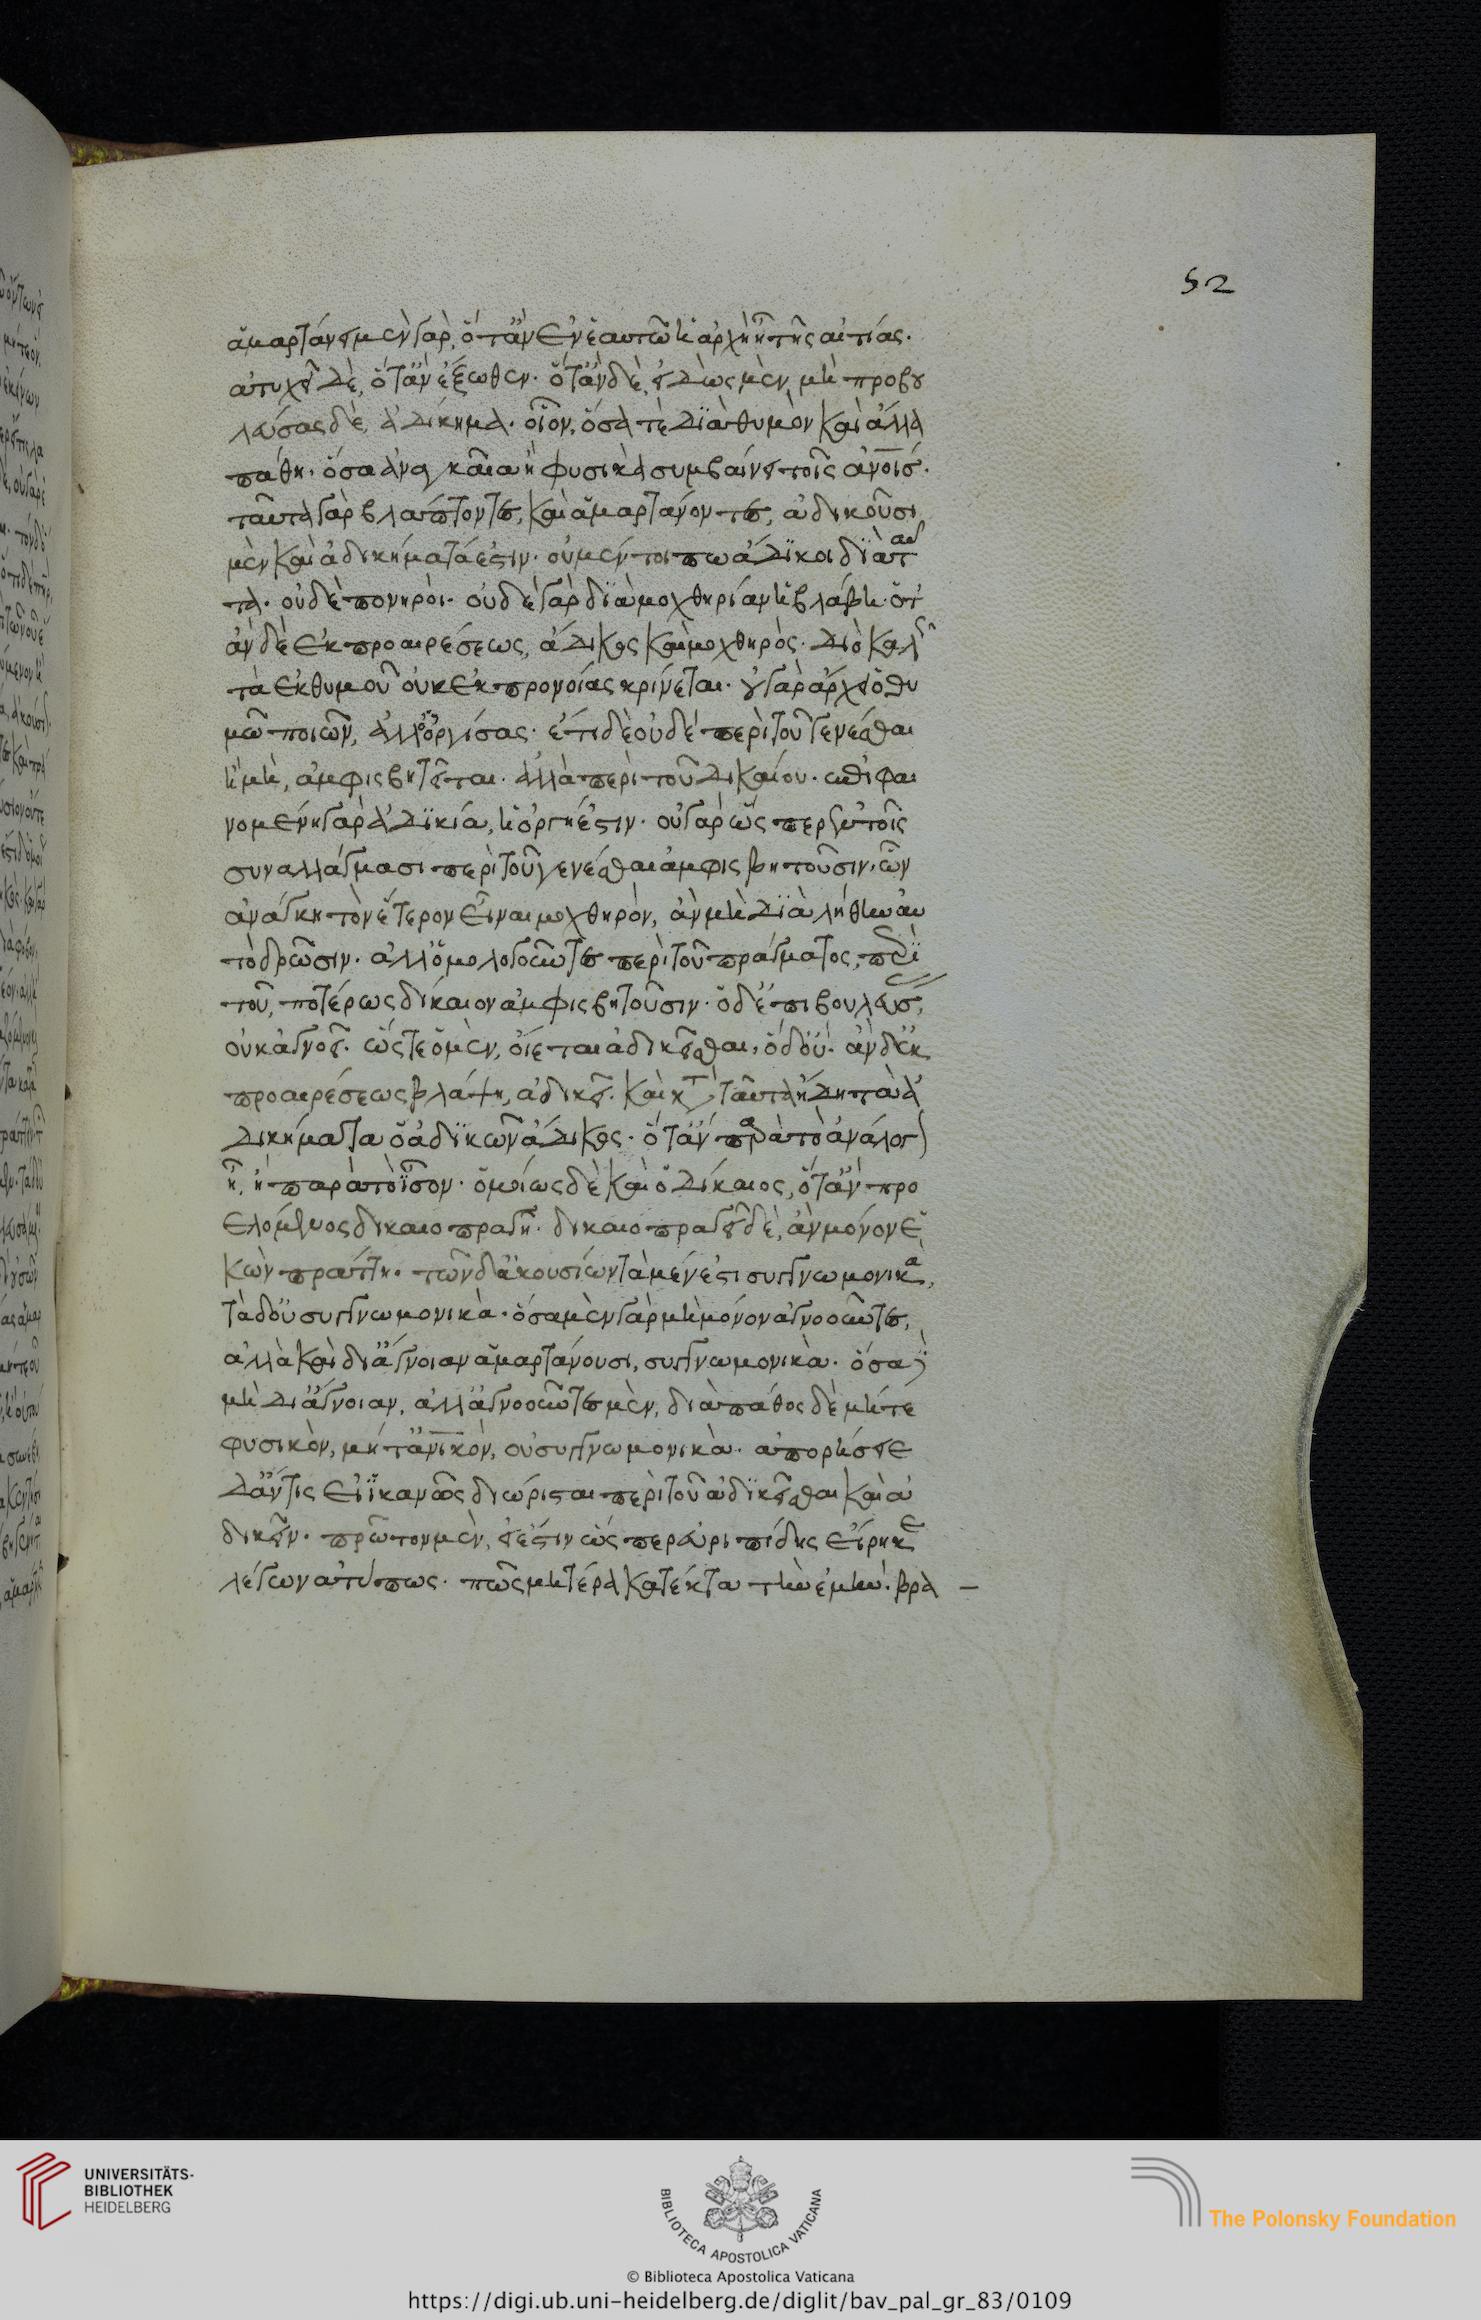 52
ἁμαρτάνει μὲν γὰρ, ὅτἂν ἐν ἑαυτῶ ἡ ἀρχὴ ἦ τῆς αἰτίας.
ἀτυχεῖ δὲ, ὅτἂν ἔξωθεν. ὅτἂν δὲ, εἰδὼς μὲν, μὴ προβου
λεύσας δὲ, ἀδίκημα. οἷον, ὅσα τὲ διὰ θυμὸν καὶ ἄλλα
πάθη. ὅσα ἀναγκαῖα ἢ φυσικὰ συμβαίνει τοῖς ἀνοις.
ταῦτα γὰρ βλάπτοντες, καὶ ἁμαρτάνοντες, ἀδικοῦσι
μὲν καὶ ἀδικήματά ἐστιν. οὐ μέν τοι πω ἄδικοι διὰ ταῦ
τα. οὐδὲ πονηροί. οὐδὲ γὰρ διὰ μοχθηρίαν ἡ βλάβη. ὅτ
ἂν δὲ ἐκ προαιρέσεως, ἄδικος καὶ μοχθηρὸς. διὸ καλῶς
τὰ ἐκ θυμοῦ οὐκ ἐκ προνοίας κρίνεται. οὐ γὰρ ἄρχει ὁ θυ
μῶ ποιῶν, ἀλλ' ὁ ὀργίσας. ἐπὶ δὲ οὐδὲ περὶ τοῦ γενέσθαι
ἢ μὴ, ἀμφισβητεῖται. ἀλλὰ περὶ τοῦ δικαίου. ἐπὶ φαι
νομένη γὰρ ἀδικία, ἡ ὀργή ἐστιν. οὐ γὰρ ὥσπερ ἐν τοῖς
συναλλάγμασι περὶ τοῦ γενέσθαι ἀμφισβητοῦσιν, ὧν
ἀνάγκη τὸν ἕτερον εἶναι μοχθηρόν, ἂν μὴ διὰ λήθην αὐ
τὸ δρῶσιν. ἀλλ' ὁμολογοῦντες περὶ τοῦ πράγματος, περὶ
τοῦ, ποτέρως δίκαιον ἀμφισβητοῦσιν. ὁ δ' ἐπιβουλεύσας,
οὐκ ἀγνοεῖ. ὥστε ὁ μὲν, οἴεται ἀδικεῖσθαι, ὁ δ' οὔ. ἂν δ' ἐκ
προαιρέσεως βλάψη, ἀδικεῖ. καὶ κατὰ ταῦτα ἤδη τὰ ἀ
δικήματα ὁ ἀδικῶν ἄδικος. ὅτἂν παρὰ τὸ ἀνάλογον
ἦ, ἢ παρὰ τὸ ἴσον. ὁμοίως δὲ καὶ ὁ δίκαιος, ὅτἂν προ
ελόμενος δικαιοπραγῆ. δικαιοπραγεῖ δὲ, ἂν μόνον ἑ
κὼν πράττη. τῶν δ' ἀκουσίων τὰ μέν ἐστι συγγνωμονικὰ,
τὰ δ' οὐ συγγνωμονικὰ. ὅσα μὲν γὰρ μὴ μόνον ἀγνοοῦντες,
ἀλλὰ καὶ δι' ἄγνοιαν ἁμαρτάνουσι, συγγνωμονικὰ. ὅσα δὲ
μὴ δι' ἄγνοιαν, ἀλλ' ἀγνοοῦντες μὲν, διὰ πάθος δὲ μήτε
φυσικὸν, μήτ' ἀνικὸν, οὐ συγγνωμονικὰ. ἀπορήσειε
δ' ἄν τις εἰ ἱκανῶς διώρισται περὶ τοῦ ἀδικεῖσθαι καὶ ἀ
δικεῖν. πρῶτον μὲν, εἰ ἔστιν ὥσπερ εὐριπίδης εἴρηκε
λέγων ἀτόπως. πῶς μητέρα κατέκτα τὴν ἐμὴν. βρα –
UNIVERSITÄTS-
BIBLIOTHEK
HEIDELBERG
BIBLIOTECA APOSTOLICA VATICANA
The Polonsky Foundation
© Biblioteca Apostolica Vaticana
https://digi.ub.uni-heidelberg.de/diglit/bav_pal_gr_83/0109